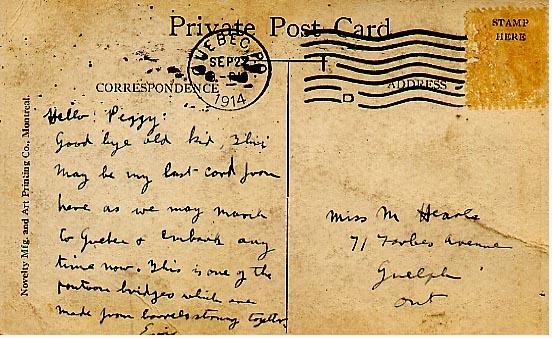 Private Post Card
STAMP
HERE
QUEBEC
SEP 27
1914
CORRESPONDENCE
ADDRESS
Novelty Mfg. and Art Printing Co., Montreal.
Hello! Peggy:
Good bye old kid, This
may be my last card from
here as we may march
to Quebec & embark any
time now. This is one of the
pontoon bridges which are
made from barrels strong together
Miss M Hearls
71 Forbes Avenue
Guelph
Ont